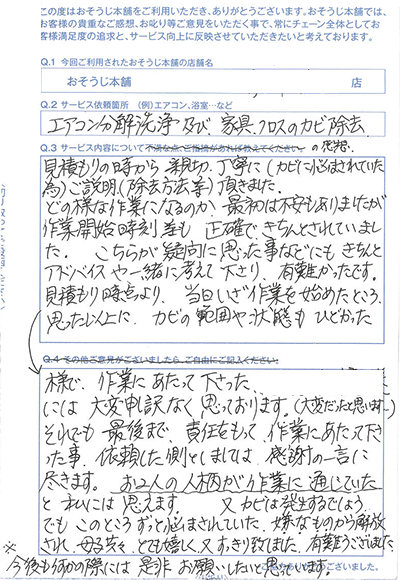 この度はおそうじ本舗をご利用いただき、ありがとうございます。おそうじ本舗では、
お客様の貴重なご感想、お叱り等ご意見をいただく事で、常にチェーン全体としてお
客様満足度の追求と、サービス向上に反映させていただきたいと考えております。
Q.1 今回ご利用されたおそうじ本舗の店舗名
おそうじ本舗 店
Q.2 サービス依頼箇所 (例)エアコン、浴室…など
エアコン分解洗浄及び、家具、クロスのカビ除去.
Q.3 サービス内容について不満な点、ご指摘があれば教えてください。の感想.
見積もりの時から親切、丁寧に(カビに悩まされていた
為)ご説明(除去方法等)頂きました。
どの様な作業になるのか、最初は不安もありましたが
作業開始時刻等も正確で、きちんとされていまし
た。こちらが疑問に思った事などにもきちんと
アドバイスや一緒に考えて下さり、有難かったです。
見積もり時点より、当日いざ作業を始めたところ、
思った以上に、カビの範囲や状態もひどかった
Q.4 その他ご意見がございましたら、ご自由にご記入ください。
様で、作業にあたって下さった、
には大変申訳なく思っております。(大変だったと思います…)
それでも最後まで、責任をもって、作業にあたって下さ
った事、依頼した側としましては、感謝の一言に
尽きます。お2人の人柄が作業に通じていた
と私には思えます。又カビは発生するでしょう。
でもこのところずっと悩まされていた、嫌なものから解放
され、母共々、とても嬉しく又、すっきり致しました。有難うございました。
※今後も何かの際には是非お願いしたいと思います。